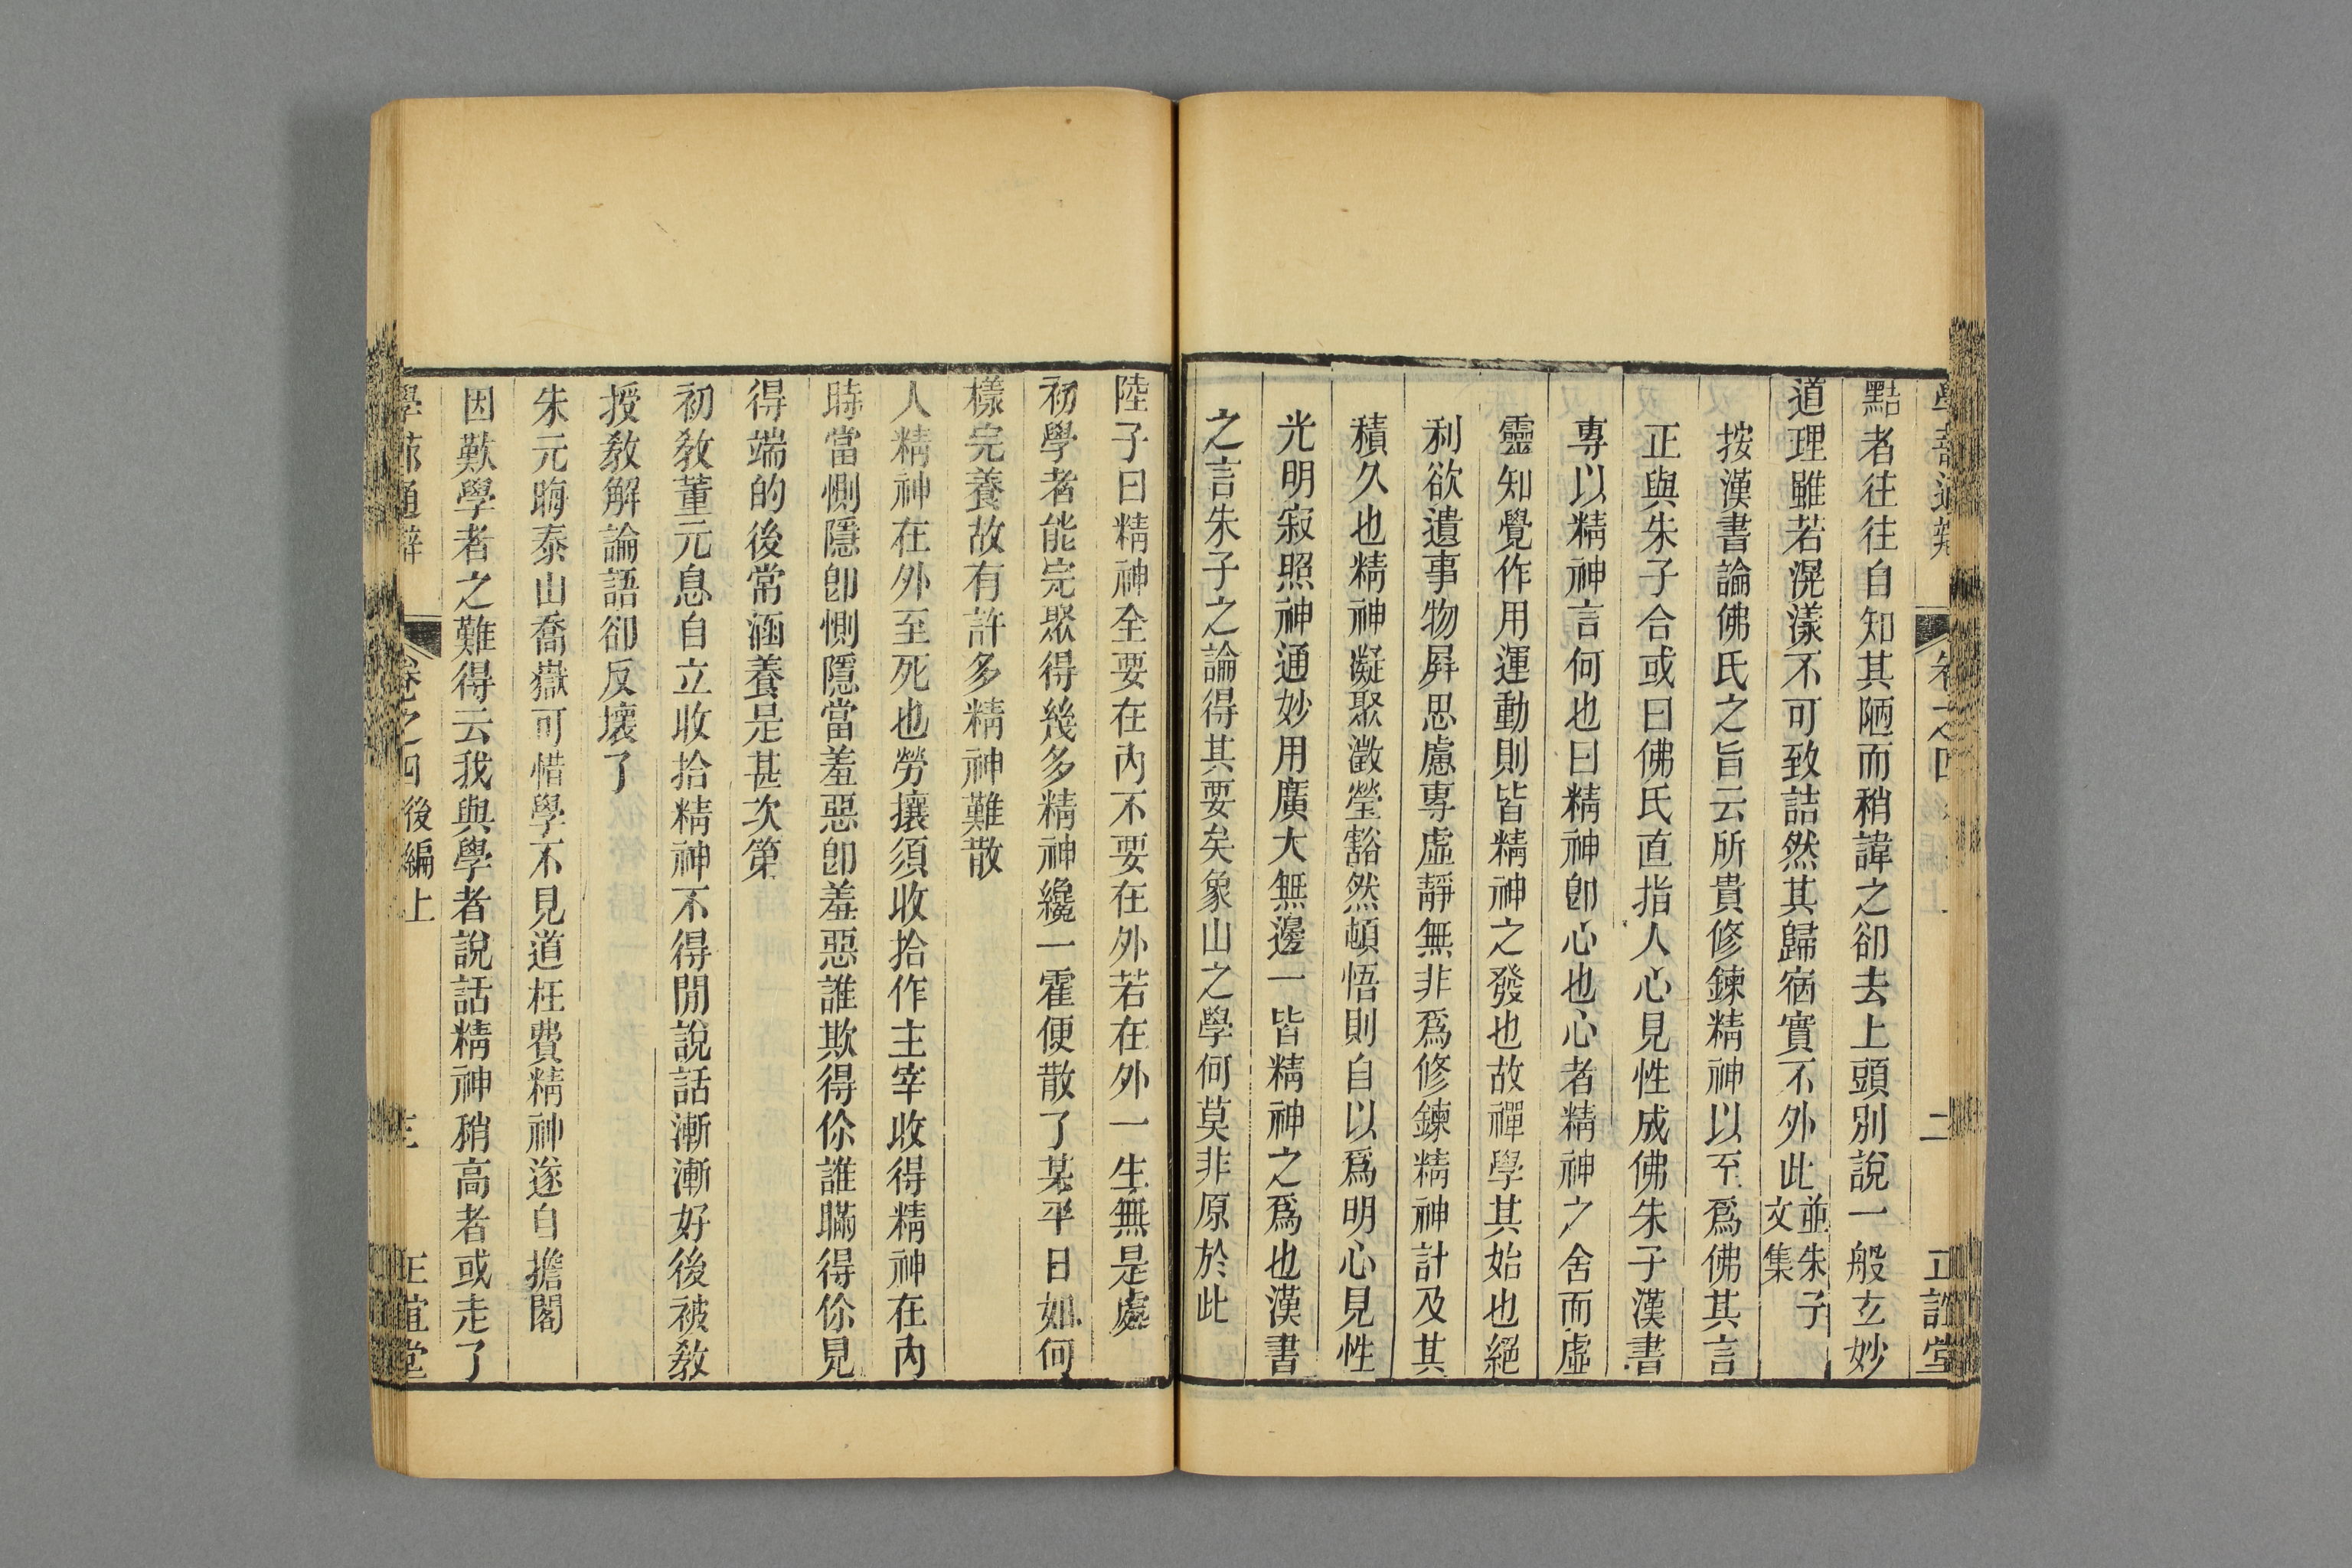 點者往往自知其陋而稍諱之卻去上頭別說一般玄妙
道理雖若滉漾不可致詰然其歸宿實不外此並朱子文集
按漢書論佛氏之旨云所貴修鍊精神以至爲佛其言
正與朱子合或曰佛氏直指人心見性成佛朱子漢書
專以精神言何也曰精神卽心也心者精神之舍而虛
靈知覺作用運動則皆精神之發也故禪學其始也絕
利欲遺事物屛思慮專虛靜無非爲修鍊精神計及其
積久也精神凝聚澂瑩豁然頓悟則自以爲明心見性
光明寂照神通妙用廣大無邊一皆精神之爲也漢書
之言朱子之論得其要矣象山之學何莫非原於此
陸子曰精神全要在內不要在外若在外一生無是處
初學者能完聚得幾多精神纔一霍便散了某平日如何
樣完養故有許多精神難散
人精神在外至死也勞攘須收拾作主宰收得精神在內
時當惻隱卽惻隱當羞惡卽羞惡誰欺得你誰瞞得你見
得端的後常涵養是甚次第
初敎董元息自立收拾精神不得閒說話漸漸好後被敎
授敎解論語卻反壞了
朱元晦泰山喬嶽可惜學不見道枉費精神遂自擔閣
因歎學者之難得云我與學者說話精神稍高者或走了
學蔀通辯
卷之四後編上
三
正誼堂